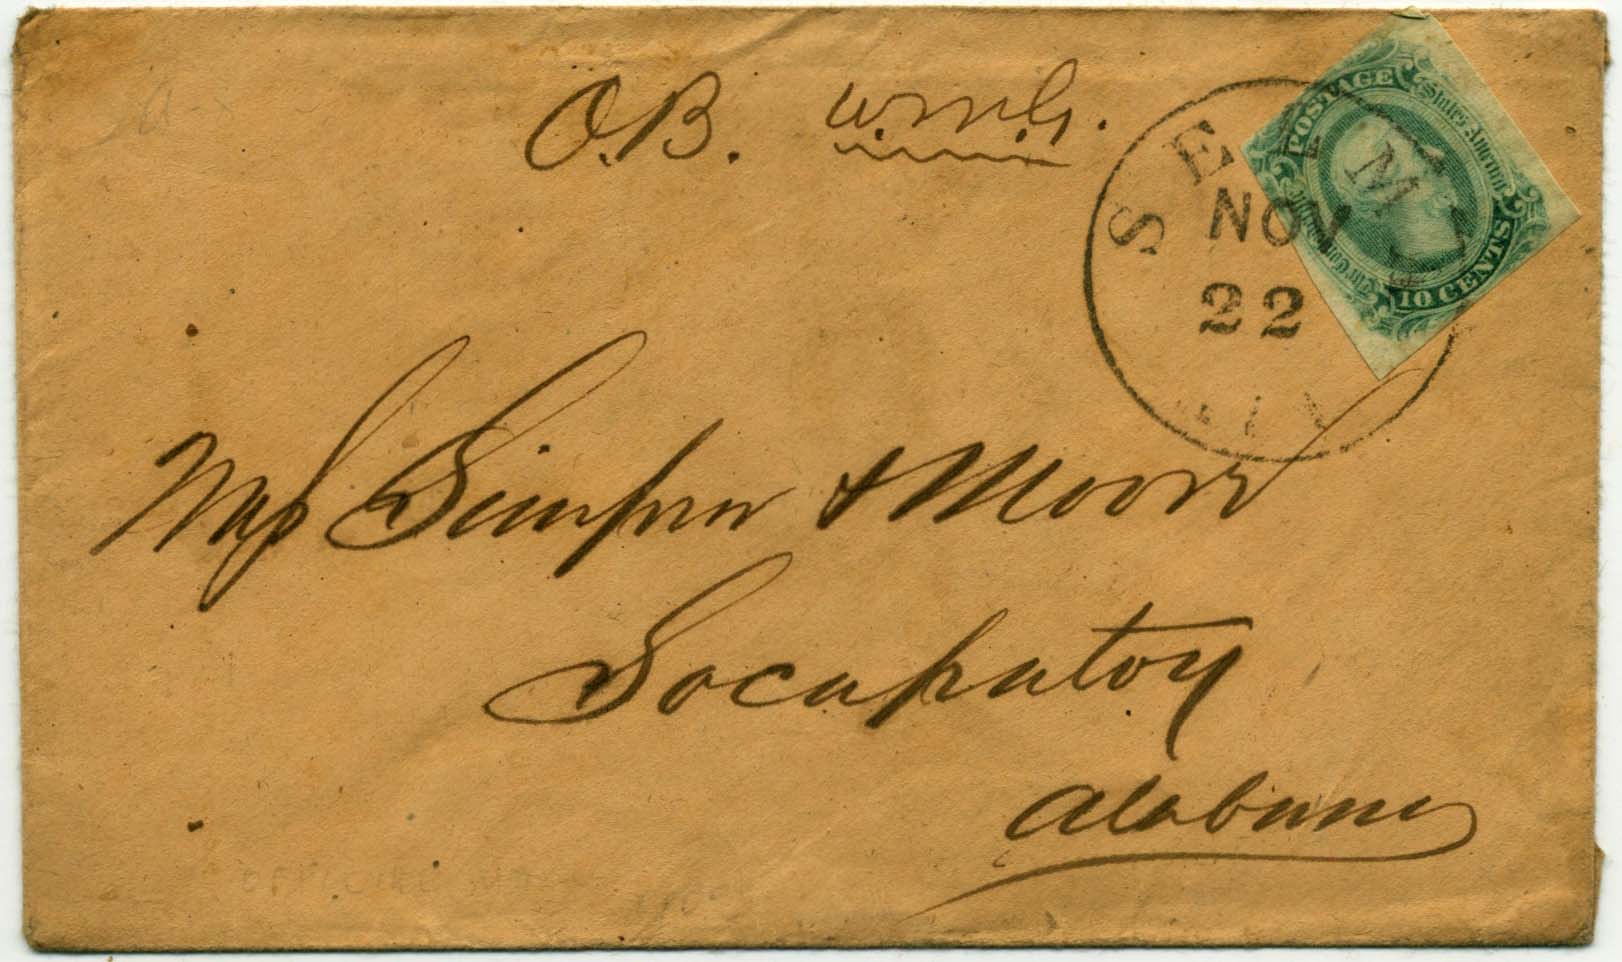 O.B. W.M.G.
SELMA
NOV
22
POSTAGE
States America
10 CENTS
Mess Simpson & Moore
Socapatoy
Alabama